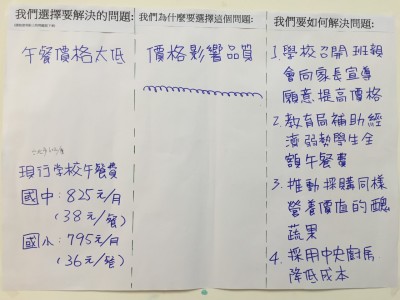 我們選擇要解決的問題:
午餐價格太低
現行學校午餐費
國中:825元/月
(38元/餐)
國小:795元/月
(36元/餐)
我們為什麼要選擇這個問題:
價格影響品質
我們要如何解決問題:
1.學校召開班親
會向家長宣導
願意提高價格
2.教育局補助經
濟弱勢學生全
額午餐費
3.推動採購同樣
營養價值的醜
蔬果
4.採用中央廚房
降低成本